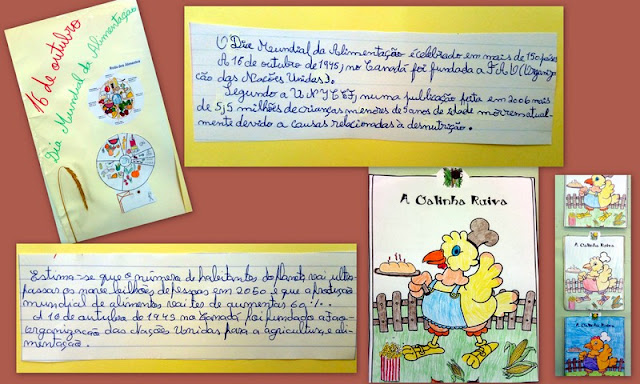 16 de outubro
Dia Mundial da Alimentação
O Dia Mundial da Alimentação é celebrado em mais de 150 países
A 16 de outubro de 1945, no Canadá foi fundada a F.A.O (Organiza
ção das Nações Unidas).
Segundo a UNICEF, numa publicação feita em 2006 mais
de 5,5 milhões de crianças menores de 5 anos de idade morrem atual-
mente devido a causas relacionadas à desnutrição.
A Galinha Ruiva
A Galinha Ruiva
A Galinha Ruiva
Estima-se que o número de habitantes do Planeta vai ultra-
passar os nove bilhões de pessoas em 2050 e que a produção
mundial de alimentos vai ter de aumentar 60%.
A 16 de outubro de 1945 no Canadá foi fundada a
organização das Nações Unidas para a agricultura e ali-
mentação.